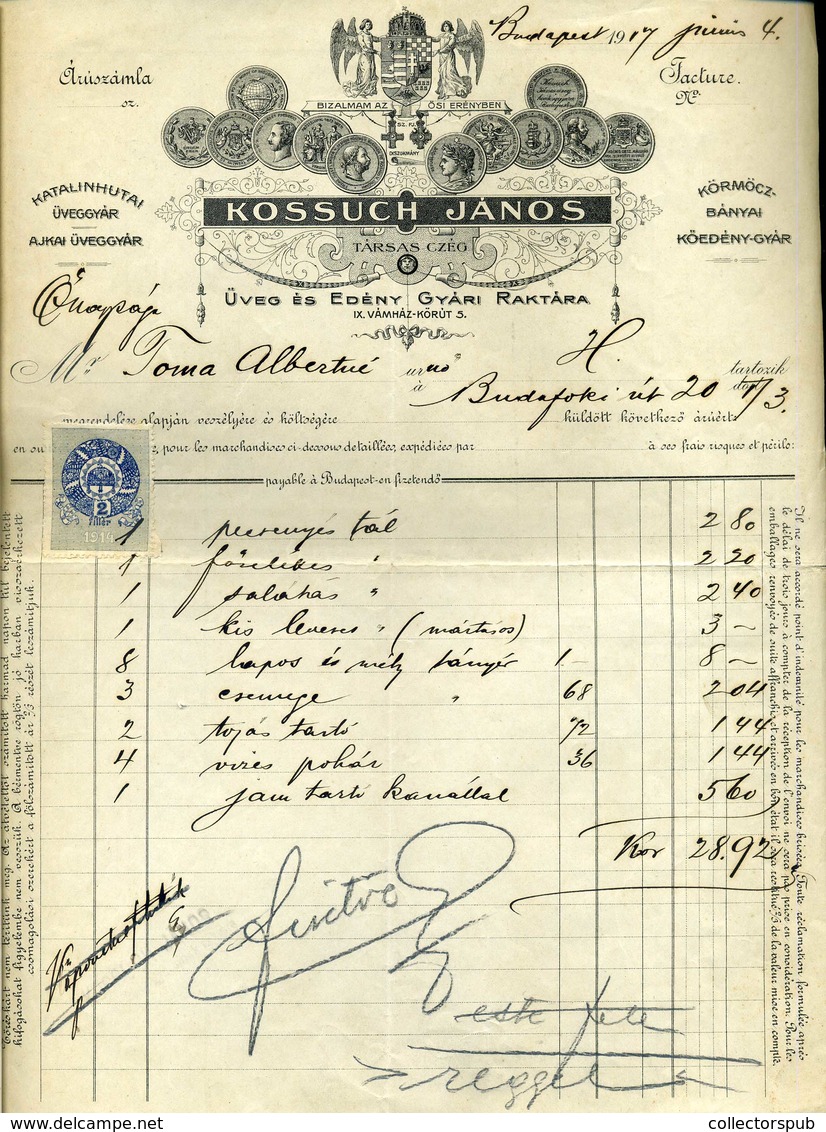 Budapest 1917 junius 4.
Árúszámla
sz.
Facture.
No
BIZALMAM AZ ŐSI ERÉNYBEN
SZ. FJ.
DISZOKMÁNY
KATALINHUTAI
ÜVEGGYÁR
AJKAI ÜVEGGYÁR
KÖRMÖCZ-
BÁNYAI
KŐEDÉNY-GYÁR
KOSSUCH JÁNOS
TÁRSAS CZÉG
ÜVEG ÉS EDÉNY GYÁRI RAKTÁRA
IX. VÁMHÁZ-KÖRÚT 5.
Őnagysága
Mr Toma Albertné urnő H. tartozik
à Budafoki út 20 doit
megrendelése alapján veszélyére és költségére küldött következő árúért:
pour les marchandises ci-dessous detaillées, expédiées par à ses frais risques et périls:
payable à Budapest-en fizetendő
2
fillér
1914
1 pecsenyés tál 2 80
1 főzelékes " 2 20
1 salátás " 2 40
1 kis leveses " (mártásos) 3 –
8 lapos és mély tányér 1 – 8 –
3 csemege " 68 2 04
2 tojás tartó 72 1 44
4 vizes pohár 36 1 44
1 jam tartó kanállal 5 60
Kor 28.92
fizetve
este fete
reggel
Töréskárt nem térítünk meg. Az átvételtől számított harmad napon túl bejelentett
kifogásokat figyelembe nem veszük. A bérmentve rögtön jó karban visszaérkezett
csomagolási szerekért a fölszámított ár 2/3 részét leszámítjuk.
Il ne sera accordé point d'indemnité pour les marchandises brisées. Toute réclamation formulée après
le délai de trois jours à compter de la réception de l'envoi ne sera pas prise en considération. Pour les
emballages renvoyés de suite affranchis et arrivés en bon état il sera restitué 2/3 de la valeur mise en compte.
collectorspub